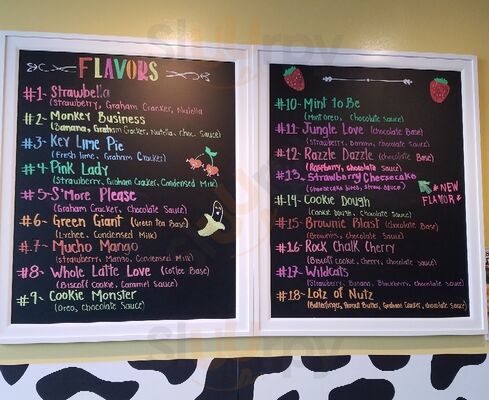 FLAVORS
#1- Strawbella
(Strawberry, Graham Cracker, Nutella)
#2- Monkey Business
(Banana, Graham Cracker, Nutella, choc. Sauce)
#3- Key Lime Pie
(Fresh lime, Graham Cracker)
#4- Pink Lady
(Strawberry, Graham Cracker, Condensed Milk)
#5- S'more Please
(Graham Cracker, Chocolate Sauce)
#6- Green Giant (Green Tea Base)
(Lychee, Condensed Milk)
#7- Mucho Mango
(strawberry, Mango, Condensed Milk)
#8- Whole Latte Love (Coffee Base)
(Biscoff Cookie, Caramel Sauce)
#9- Cookie Monster
(Oreo, chocolate Sauce)
#10- Mint to Be
(Mint Oreo, Chocolate Sauce)
#11- Jungle Love (Chocolate Base)
(Strawberry, Banana, chocolate Sauce)
#12- Razzle Dazzle (chocolate Base)
(Raspberry, chocolate Sauce)
#13- Strawberry Cheesecake
(cheesecake bites, straw. sauce)
*NEW
FLAVOR*
#14- Cookie Dough
(Cookie Dough, Chocolate Sauce)
#15- Brownie Blast (chocolate Base)
(Brownie, chocolate Sauce)
#16- Rock Chalk Cherry
(Biscoff cookie, cherry, chocolate Sauce)
#17- Wildcats
(Strawberry, Banana, Blackberry, chocolate Sauce)
#18- Lotz of Nutz
(Butterfinger, Peanut Butter, Graham Cracker, chocolate Sauce)